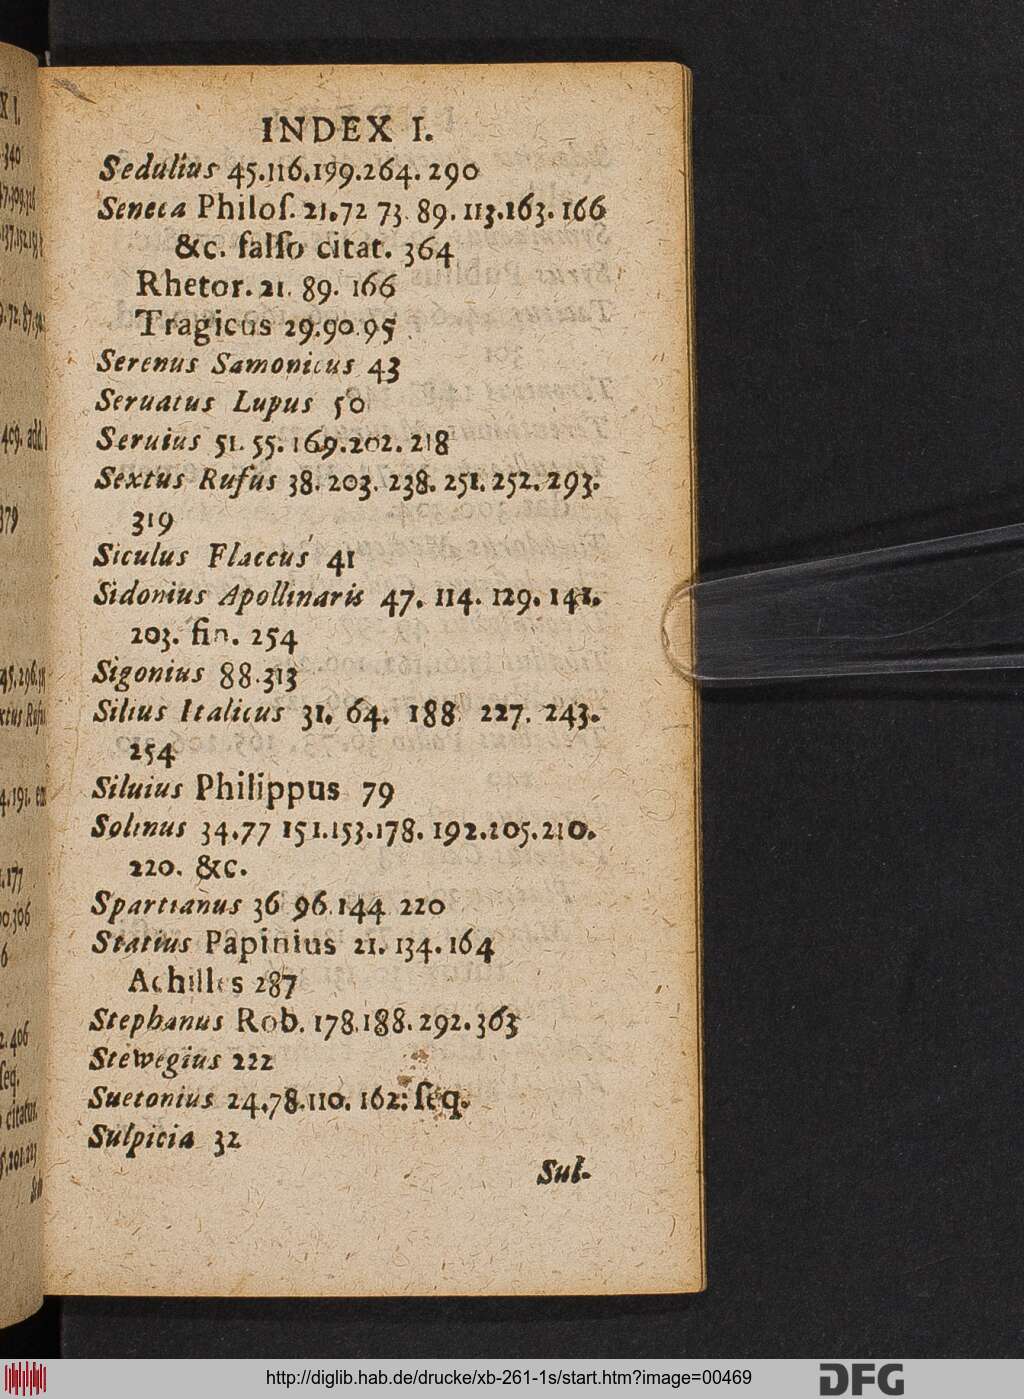 INDEX I.
Sedulius 45.116.199.264.290
Seneca Philoſ. 21.72 73. 89. 113.163. 166
&c. falſo citat. 364
Rhetor. 21. 89. 166
Tragicus 29.90.95
Serenus Samonicus 43
Seruatus Lupus 50
Seruius 51. 55. 169.202. 218
Sextus Rufus 38. 203. 238. 251. 252. 293.
319
Siculus Flaccus 41
Sidonius Apollinaris 47. 114. 129. 141.
203. fin. 254
Sigonius 88.313
Silius Italicus 31. 64. 188 227. 243.
254
Siluius Philippus 79
Solinus 34.77 151.153.178. 192.205.210.
220. &c.
Spartianus 36 96.144 220
Statius Papinius 21. 134. 164
Achilles 287
Stephanus Rob. 178.188. 292. 363
Stewegius 222
Suetonius 24.78.110. 162: ſeq.
Sulpicia 32
Sul-
http://diglib.hab.de/drucke/xb-261-1s/start.htm?image=00469
DFG